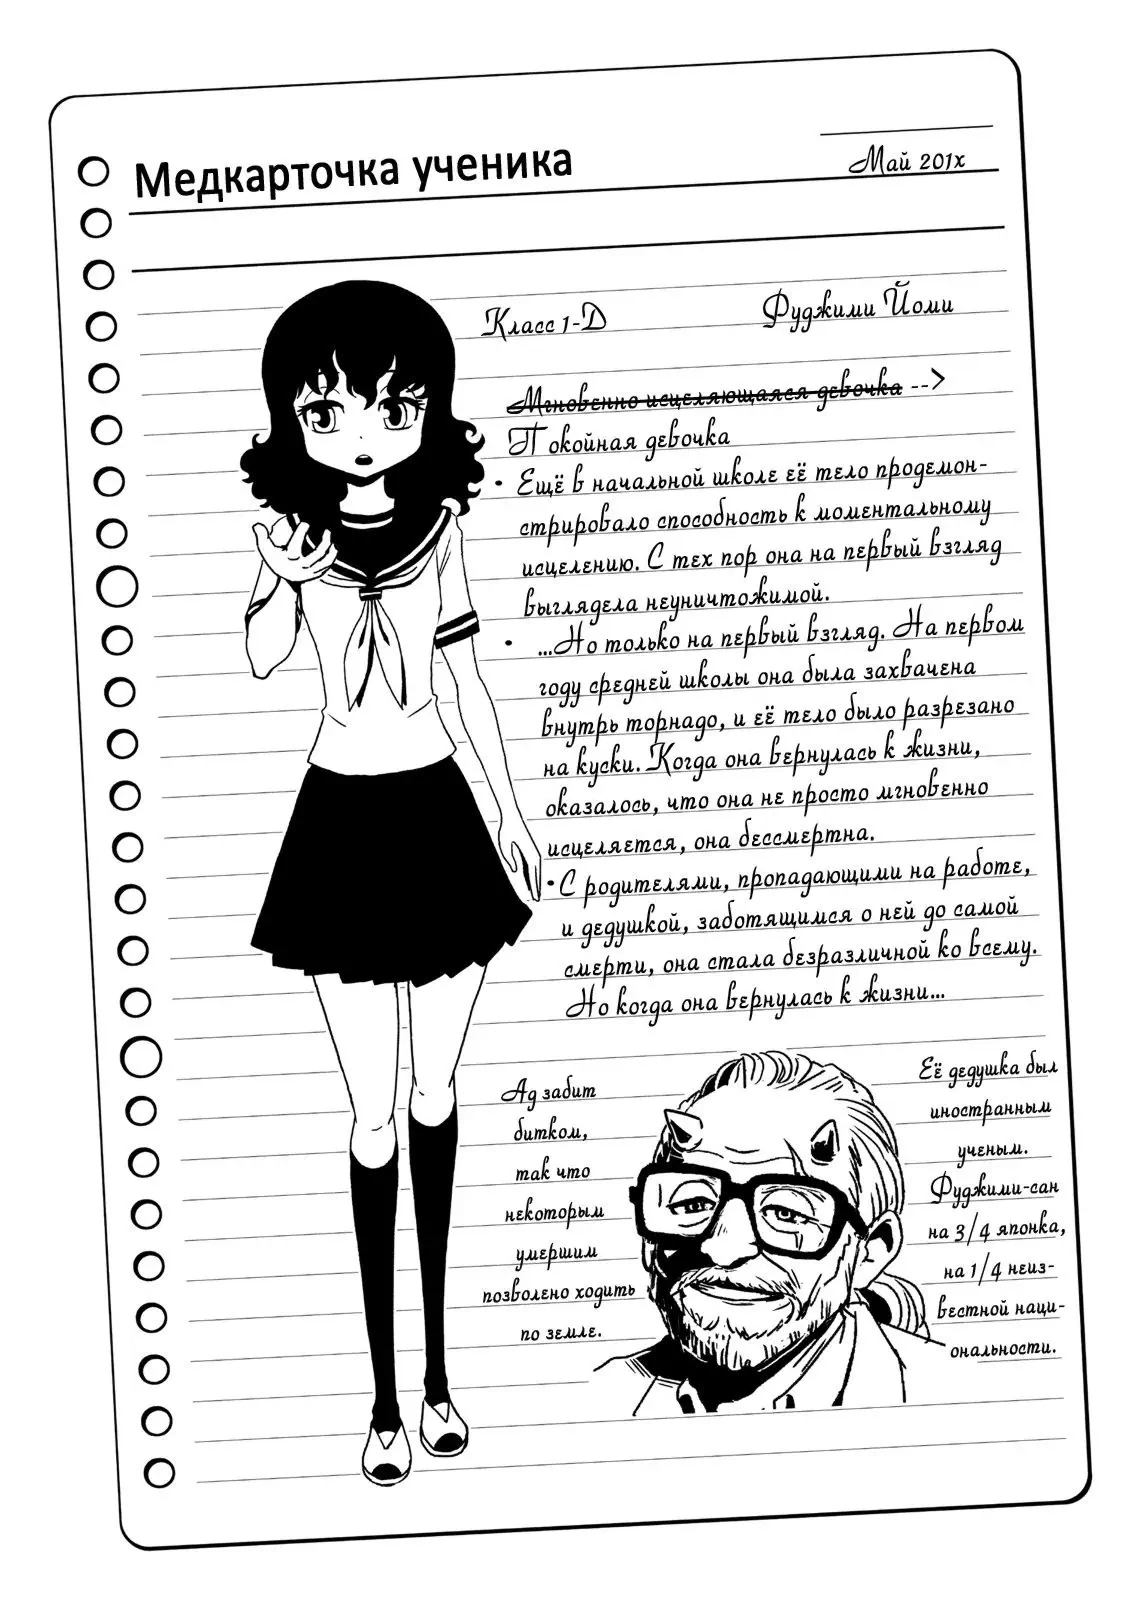 Медкарточка ученика
Май 201x
Класс 1-D
Фуджими Йоми
Мгновенно исцеляющаяся девочка -->
П окойная девочка
• Ещё в начальной школе её тело продемон-
стрировало способность к моментальному
исцелению. С тех пор она на первый взгляд
выглядела неуничтожимой.
• ...Но только на первый взгляд. На первом
году средней школы она была захвачена
внутрь торнадо, и её тело было разрезано
на куски. Когда она вернулась к жизни,
оказалось, что она не просто мгновенно
исцеляется, она бессмертна.
• С родителями, пропадающими на работе,
и дедушкой, заботящимся о ней до самой
смерти, она стала безразличной ко всему.
Но когда она вернулась к жизни...
Ад забит
битком,
так что
некоторым
умершим
позволено ходить
по земле.
Её дедушка был
иностранным
ученым.
Фуджими-сан
на 3/4 японка,
на 1/4 неиз-
вестной наци-
ональности.